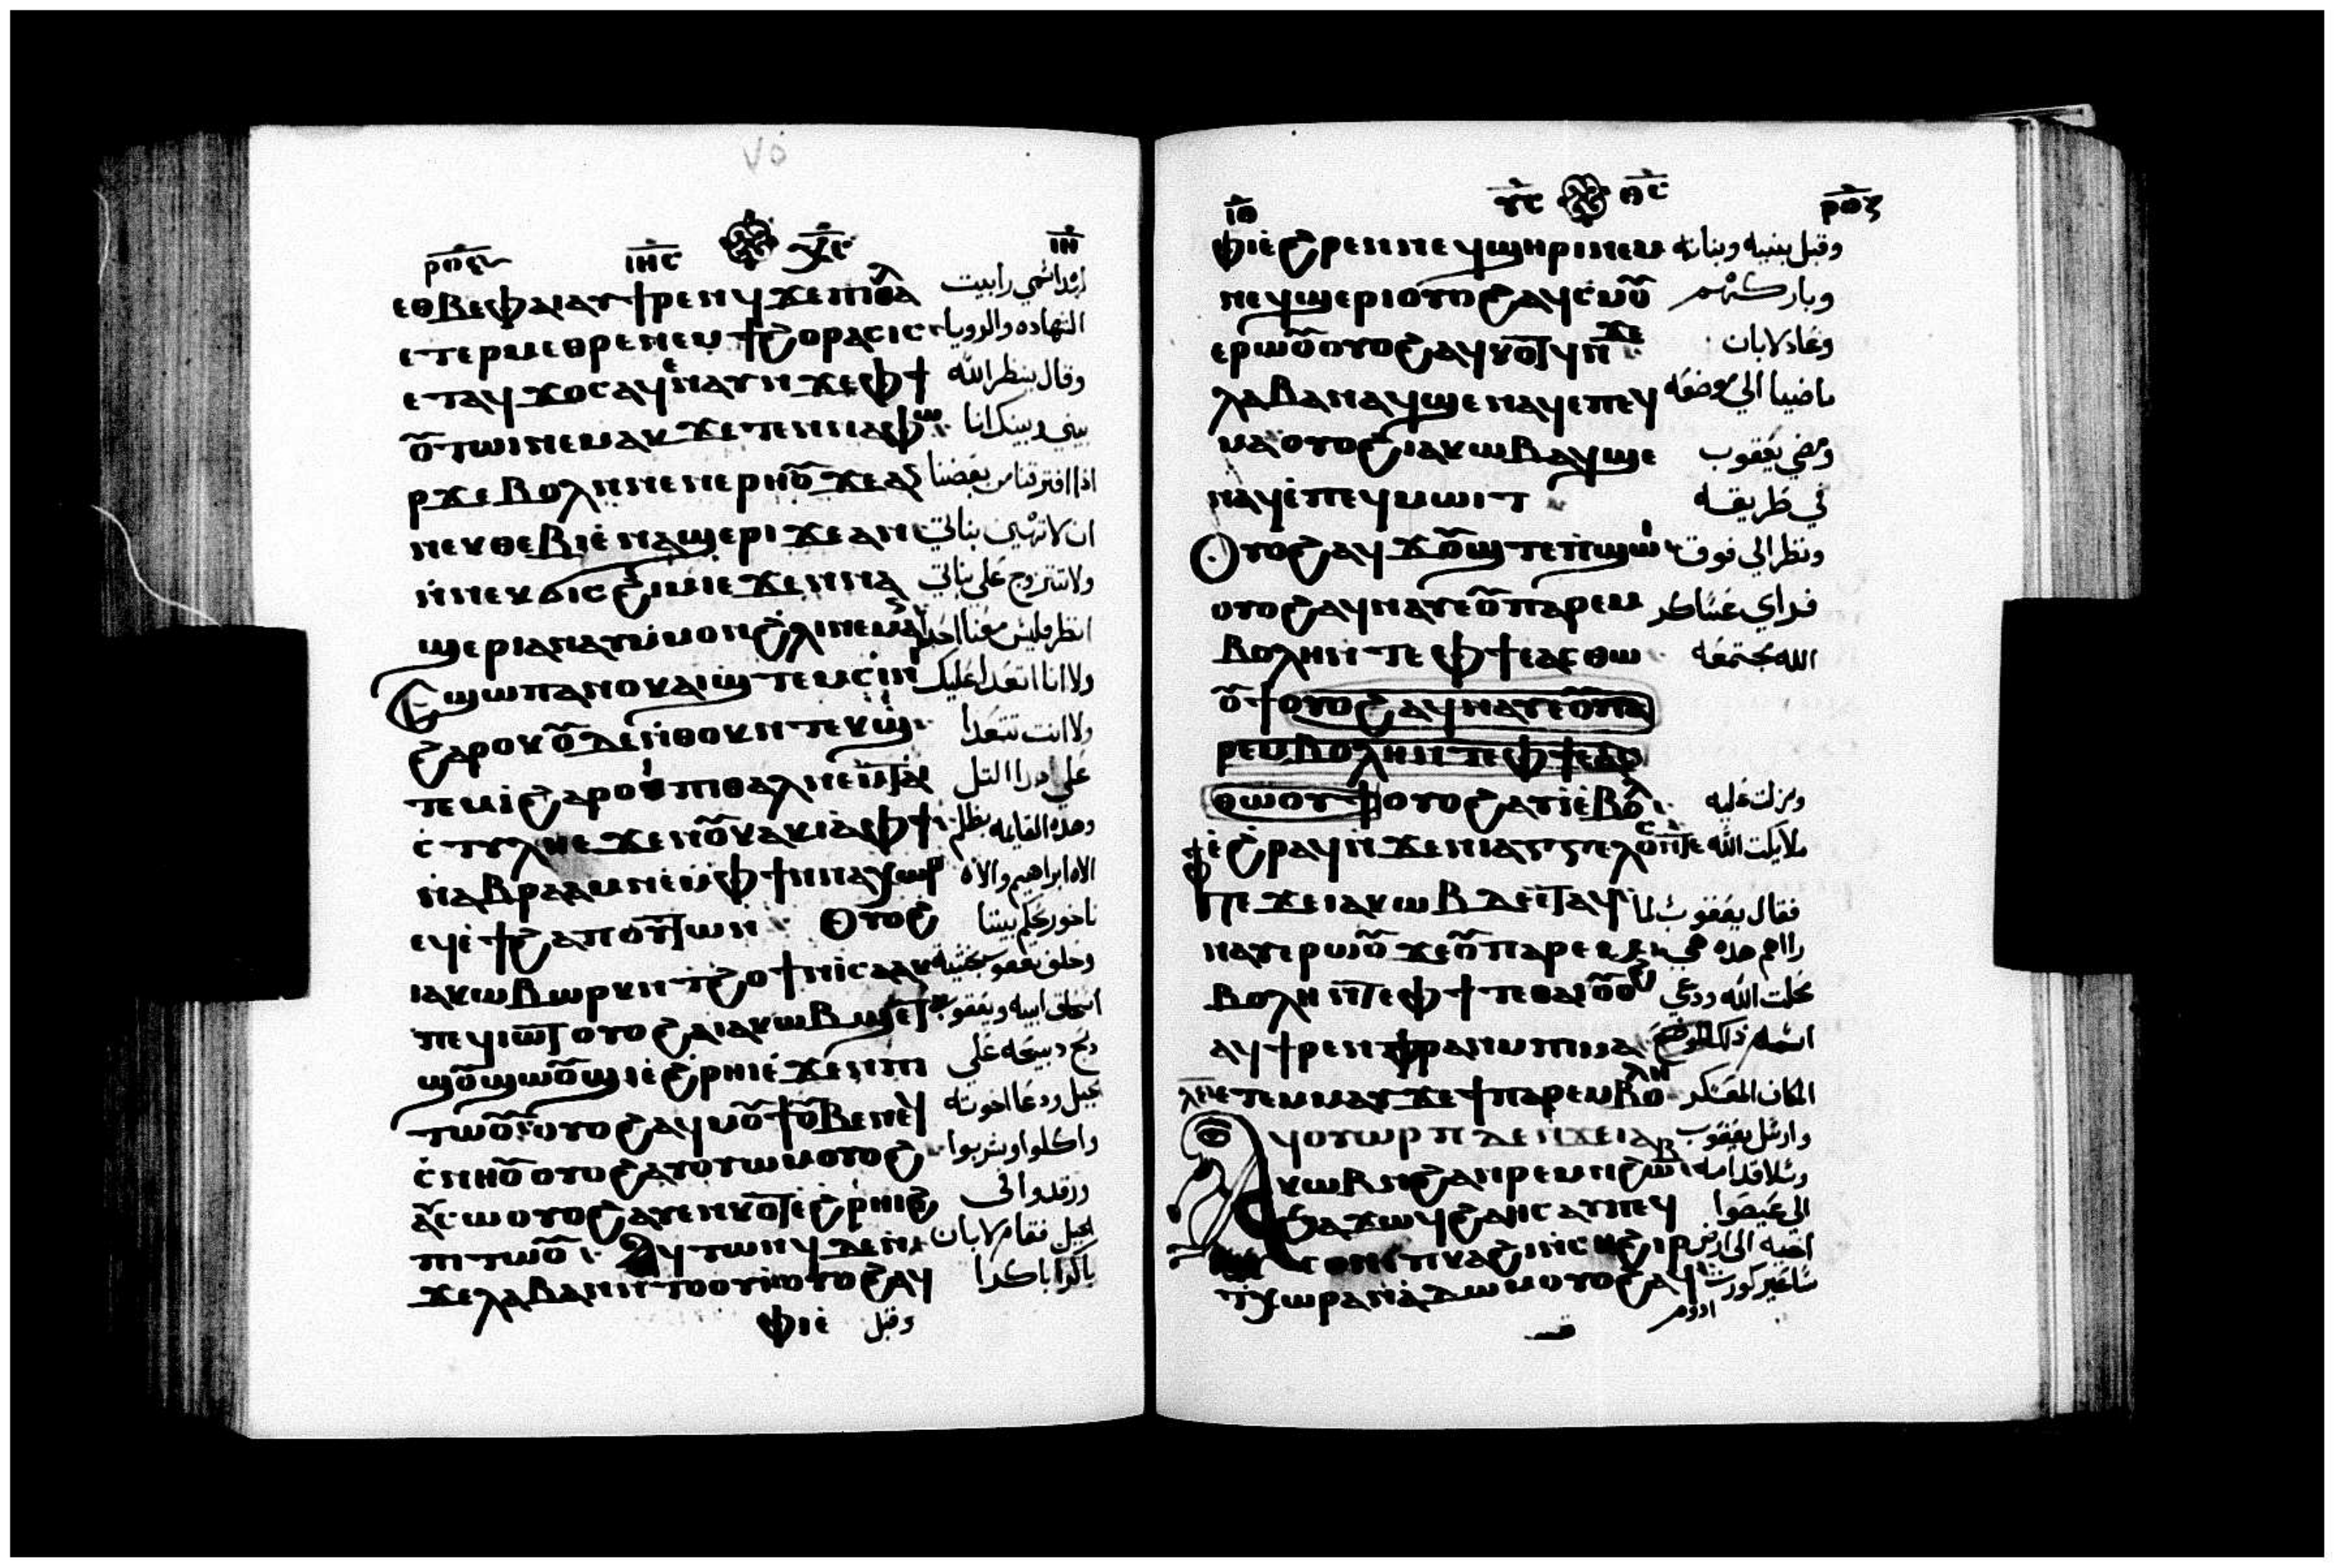 ⲣⲟⲋ ⲓⲏⲥ ⲭⲥ ⲓⲏ
ⲉⲑⲃⲉⲫⲁⲓⲁⲩϯⲣⲉⲛϥ ϫⲉⲡⲓⲙⲁ
ⲉⲧⲉⲣⲙⲉⲑⲣⲉⲛⲉⲙϯϩⲟⲣⲁⲥⲓⲥ الشهاده والرويا
ⲉⲧⲁϥϫⲟⲥ ϫⲉⲫϯ وقال ينظر الله
ⲟⲩⲧⲱⲓⲛⲉⲙⲁⲕ ϫⲉ بيني وبينك انا
ⲉⲃⲟⲗⲛⲛⲉⲛⲉⲣⲏⲟⲩ اذا افترقنا من بعضنا
ⲛⲉⲕⲑⲉⲃⲓⲉⲛⲁϣⲉⲣⲓ ان لا تهين بناتي
ⲛⲛⲉⲕϭⲓⲥϩⲓⲙⲓⲉϫⲉⲛⲛⲁ ولا تتزوج على بناتي
ϣⲉⲣⲓⲁⲛⲁⲩⲙⲙⲟⲛϩⲗⲓⲛⲉⲙⲁⲛ انظر فليس معنا احدا
ⲉϣⲱⲡⲁⲛⲟⲕⲁⲓϣⲧⲉⲙⲥⲓⲛⲓ ولا انا اتعدا عليك
ϩⲁⲣⲟⲕⲟⲩⲇⲉⲛⲑⲟⲕⲛⲧⲉⲕϣ ولا انت تتعدا
ⲧⲉⲙⲓϩⲁⲣⲟⲓ ⲡⲓⲑⲁⲗⲛⲉⲙⲧⲁⲓ التل
ⲥⲧⲩⲗⲏⲉ ϫⲉⲛⲟⲩⲕⲁⲕⲓⲁ ⲫϯ وهذه القايمه بظلم
ⲛⲁⲃⲣⲁⲁⲙⲛⲉⲙⲫϯⲛⲛⲁⲭⲱⲣ الاه ابراهيم والاه
ⲉϥⲉϯϩⲁⲡⲟⲩⲧⲱⲛ ⲟⲩⲟϩ ناخور يحكم بيننا
ⲓⲁⲕⲱⲃⲱⲣⲕⲛⲧϩⲟϯⲛⲓⲥⲁⲁⲕ وحلف يعقوب بخشيه
ⲡⲉϥⲓⲱⲧⲟⲩⲟϩⲁⲓⲁⲕⲱⲃϣⲉⲧ اسحاق ابيه ويعقوب
ϣⲟⲩϣⲱⲟⲩϣⲓⲉϩⲣⲏⲓⲉϫⲉⲛⲡⲓ ذبح ذبيحه على
ⲧⲱⲟⲩⲟⲩⲟϩⲁϥⲙⲟⲩϯⲟⲩⲃⲉⲛⲉϥ جبل ودعا اخوته
ⲥⲛⲏⲟⲩⲟⲩⲟϩⲁⲩⲟⲩⲱⲙⲟⲩⲟϩ واكلوا وشربوا
ⲁⲩⲥⲱⲟⲩⲟϩⲁⲩⲉⲛⲕⲟⲧⲉϩⲣⲏⲓϩ ورقدوا في
ⲡⲓⲧⲱⲟⲩ ⲁϥⲧⲱⲛϥⲇⲉⲛ الجبل فقام لابان
ϫⲉⲗⲁⲃⲁⲛⲛⲧⲟⲟⲩⲓⲟⲩⲟϩⲁϥ باكرا باكرا
ⲫⲓⲉ وقبل
ⲓⲑ ⲩⲥ ⲑⲥ ⲣⲟⲍ
ⲫⲓⲉϩⲣⲉⲛⲛⲉϥϣⲏⲣⲓⲛⲉⲙ وقبل بنيه وبناته
ⲛⲉϥϣⲉⲣⲓⲟⲩⲟϩⲁϥⲥⲙⲟⲩ وباركهم
ⲉⲣⲱⲟⲩⲟⲩⲟϩⲁϥⲕⲟⲧϥⲛϫⲉ وعاد لابان
ⲗⲁⲃⲁⲛⲁϥϣⲉⲛⲁϥⲉⲡⲉϥ ماضيا الي موضعه
ⲙⲁⲟⲩⲟϩⲓⲁⲕⲱⲃⲁϥϣⲉ ومضي يعقوب
ⲛⲁϥⲉⲡⲉϥⲙⲱⲓⲧ في طريقه
ⲟⲩⲟϩⲁϥϫⲟⲩϣⲧⲉⲡϣⲱⲓ ونظر الي فوق
ⲟⲩⲟϩⲁϥⲛⲁⲩⲉⲟⲩⲡⲁⲣⲉⲙ فراي عساكر
ⲃⲟⲗⲏⲛⲧⲉⲫϯⲉⲁⲥⲑⲱ الله مجتمعه
ⲟⲩϯⲟⲩⲟϩⲁϥⲛⲁⲩⲉⲟⲩⲡⲁ
ⲣⲉⲙⲃⲟⲗⲏⲛⲧⲉⲫϯⲉⲁⲥ
ⲑⲱⲟⲩϯⲟⲩⲟϩⲁⲩⲓⲉⲃⲟⲗ ونزلت عليه
ⲉϩⲣⲁϥⲛϫⲉⲛⲓⲁⲅⲅⲉⲗⲟⲥⲛⲧⲉ ملايكت الله
ⲫϯ ⲡⲉϫⲉⲓⲁⲕⲱⲃⲇⲉⲉⲧⲁϥ فقال يعقوب لما
ⲛⲁⲩⲉⲣⲱⲟⲩϫⲉⲟⲩⲡⲁⲣⲉⲙ راهم هذه هي
ⲃⲟⲗⲏⲛⲧⲉⲫϯⲧⲉⲑⲁⲓⲟⲩⲟϩ محلت الله ودعي
ⲁϥϯⲣⲉⲛⲫⲣⲁⲛⲙⲡⲓⲙⲁ اسم ذلك الموضع
ⲉⲧⲉⲙⲙⲁⲩϫⲉϯⲡⲁⲣⲉⲙⲃⲟⲗⲏ المكان المعسكر
ⲁϥⲟⲩⲱⲣⲡⲇⲉⲛϫⲉⲓⲁ وارسل يعقوب
ⲕⲱⲃⲛϩⲁⲛⲣⲉⲙⲛϩⲱⲃ رسلا قدامه
ϧⲁϫⲱϥϩⲁⲏⲥⲁⲩⲡⲉϥ الي عيصوا
ⲥⲟⲛⲉⲡⲕⲁϩⲓⲛⲥⲏⲉⲓⲣ اخيه الى ارض
ⲧⲭⲱⲣⲁⲛⲁⲇⲱⲙⲟⲩⲟϩⲁϥ ساعير كورت
ادوم